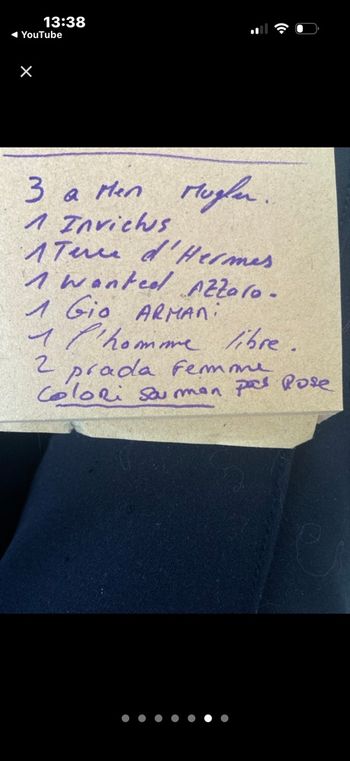 13:38
◀ YouTube
3 a Men Mugler.
1 Invictus
1 Terre d'Hermes
1 Wanted Azzaro.
1 Gio ARMANi
1 l'homme libre.
2 prada Femme
Colori saumon pas Rose